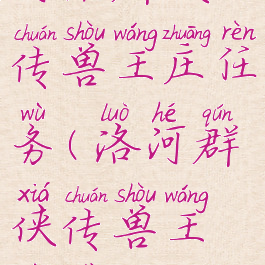 chuán shòu wáng zhuāng rèn
传兽王庄任
wù luò hé qún
务(洛河群
xiá chuán shòu wáng
侠传兽王